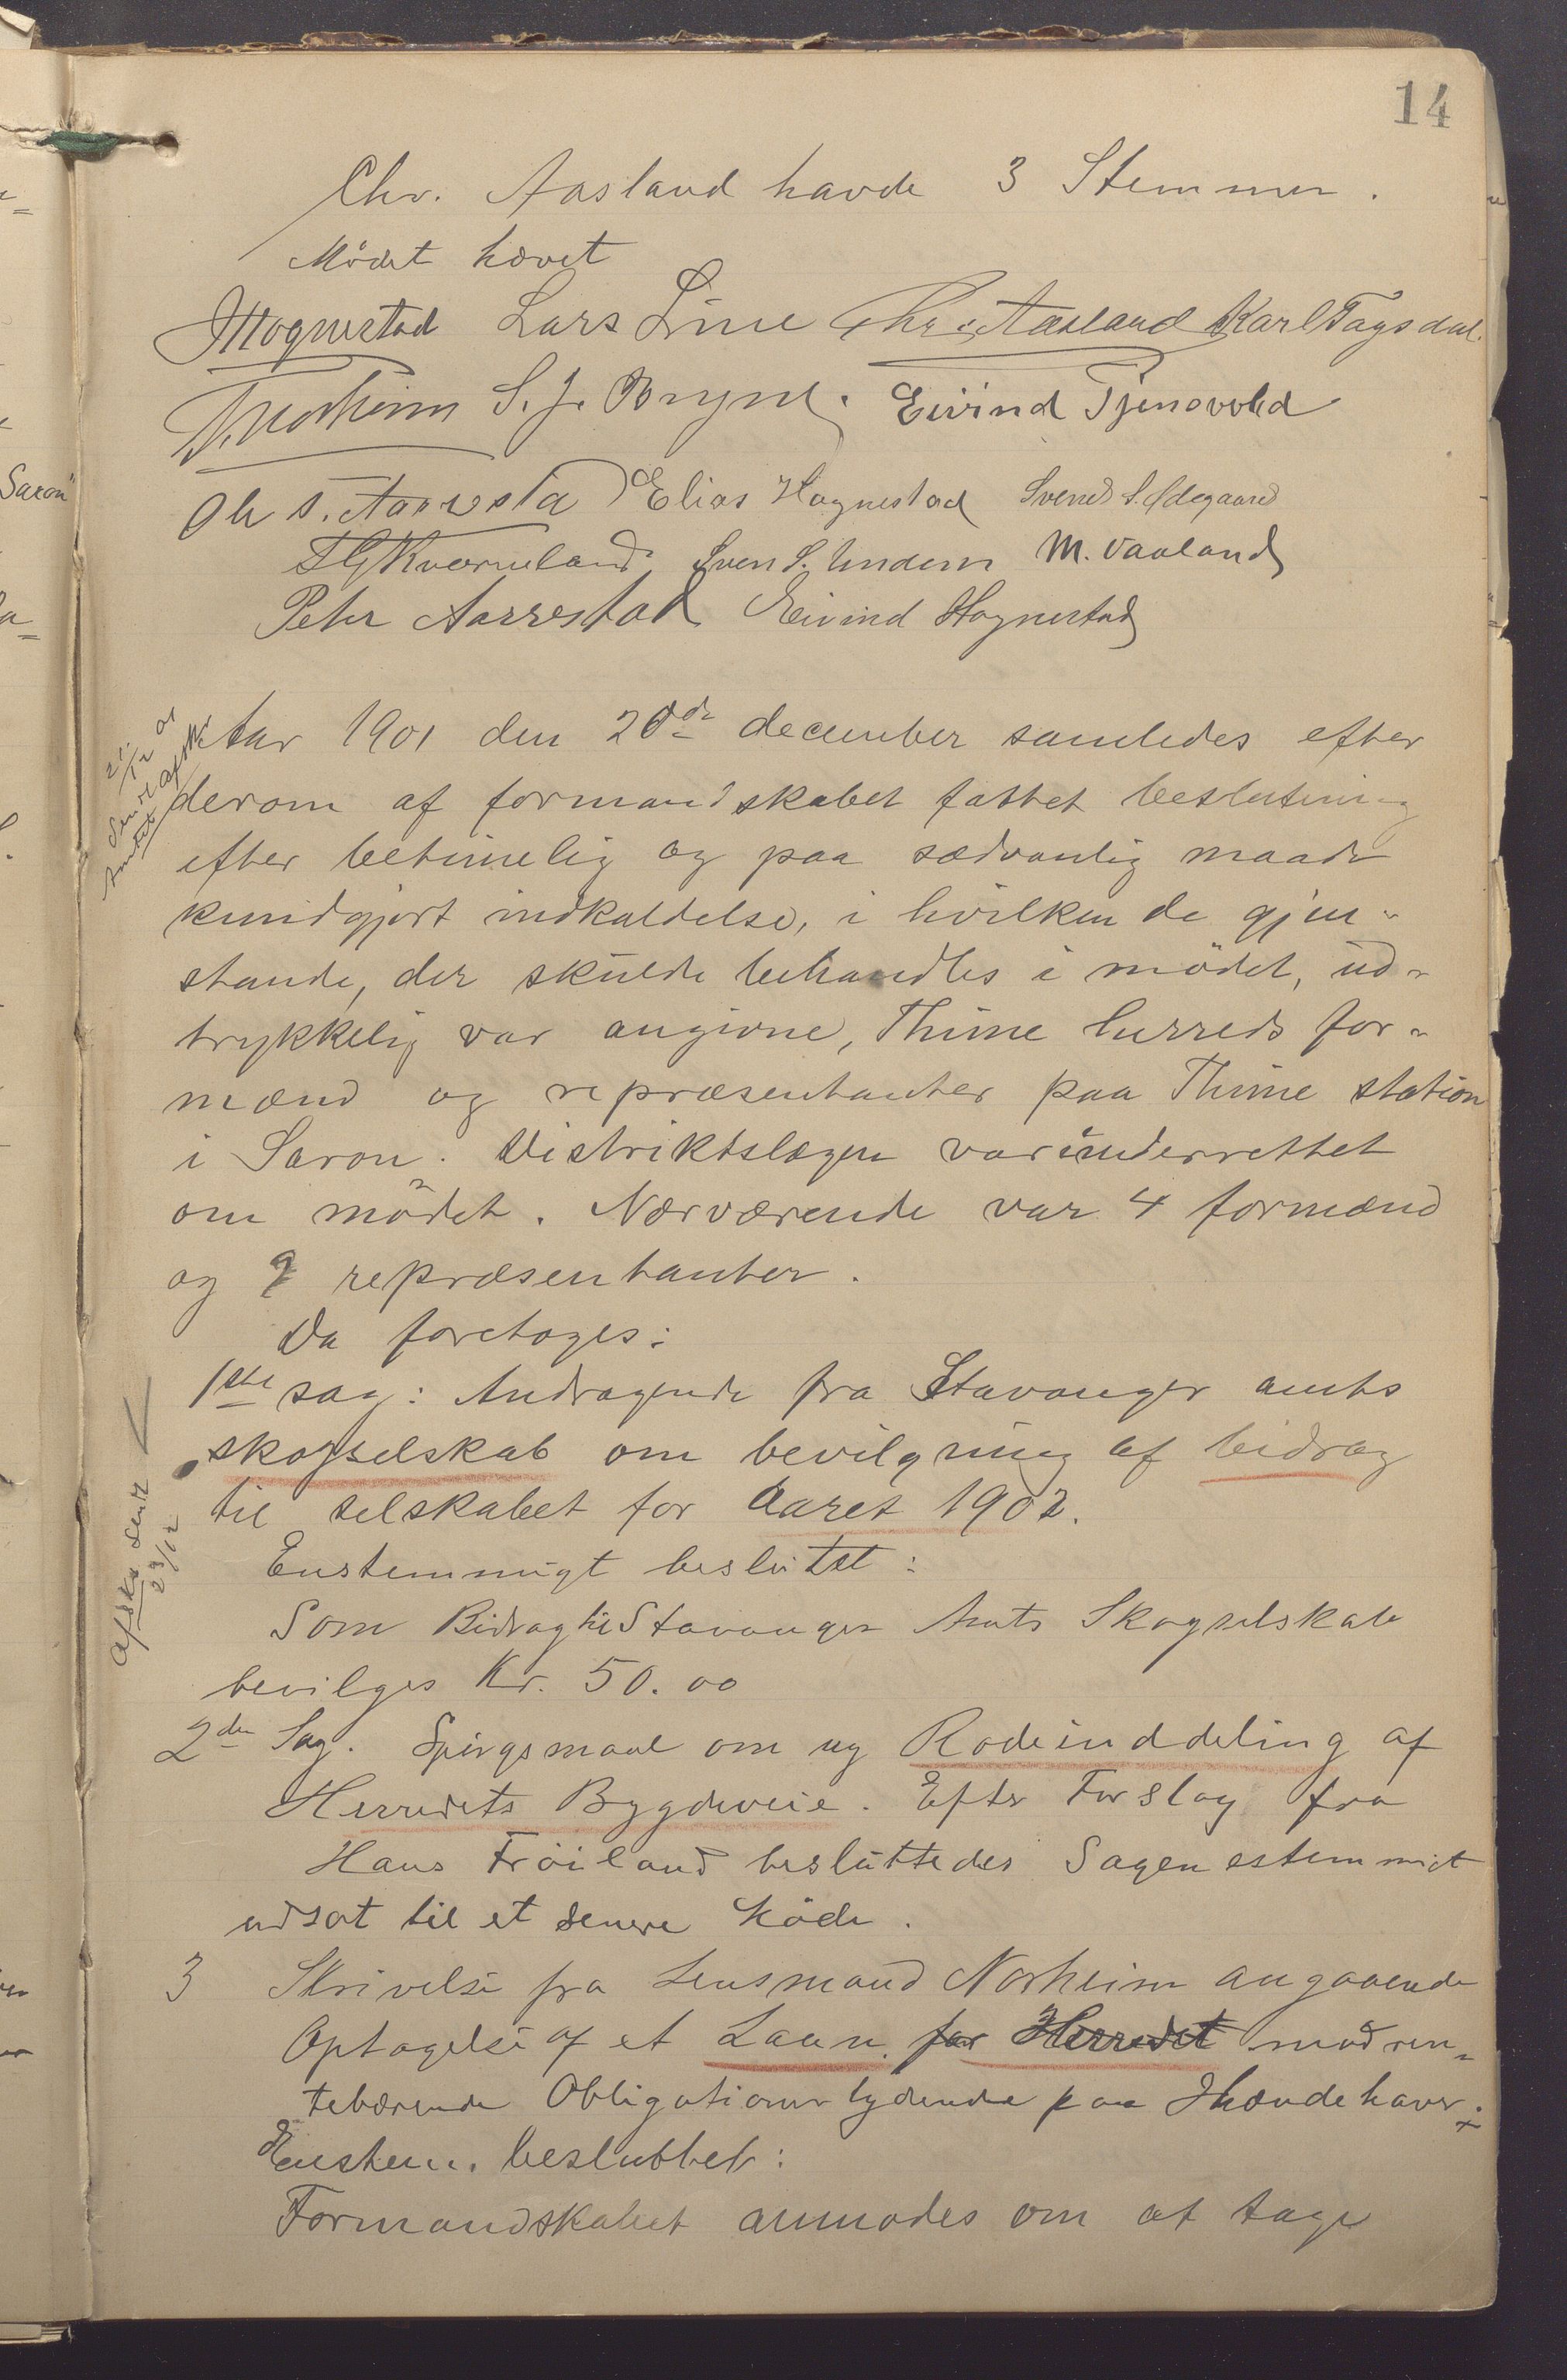 14
Chr. Aasland havde 3 Stemmer.
Mödet hævet
Hognestad Lars Line Chr. Aasland Karl Fagsdal.
Norheim S. J. Bryne. Eivind Tjensvold
Ole S. Aarrestad Elias Hognestad Svend S. Ødegaard
T G Kverneland Sven S. Undem M. Vaaland
Peter Aarrestad Eivind Hognestad
21/12 01
Sendt Afskr
Amtet
Aar 1901 den 20de december samledes efter
derom af formandskabet fattet beslutning
efter betimelig og paa sædvanlig maade
kundgjort indkaldelse, i hvilken de gjen-
stande, der skulde behandles i mödet, ud-
trykkelig var angivne, Thime herreds for-
mænd og repræsentanter paa Thime station
i Saron. Distriktslægen var underrettet
om mödet. Nærværende var 4 formænd
og 9 repræsentanter.
Da foretoges:
1ste sag: Andragende fra Stavanger amts
skogselskab om bevilgning af bidrag
til selskabet for Aaret 1902.
Afskr sendt
Enstemmigt beslutet:
Som Bidrag til Stavanger Amts Skogselskab
bevilges Kr. 50.00
2den Sag. Spörgsmaal om ny Rodeinddeling af
Herredets Bygdeveie. Efter Forslag fra
Hans Fröiland besluttedes Sagen estemmigt
udsat til et senere Möde.
3 Skrivelse fra Lensmand Norheim angaaende
Optagelse af et Laan for Herredet mod ren-
tebærende Obligationer lydende paa Ihændehaver.
Enstem. besluttet:
Formandskabet anmodes om at tage